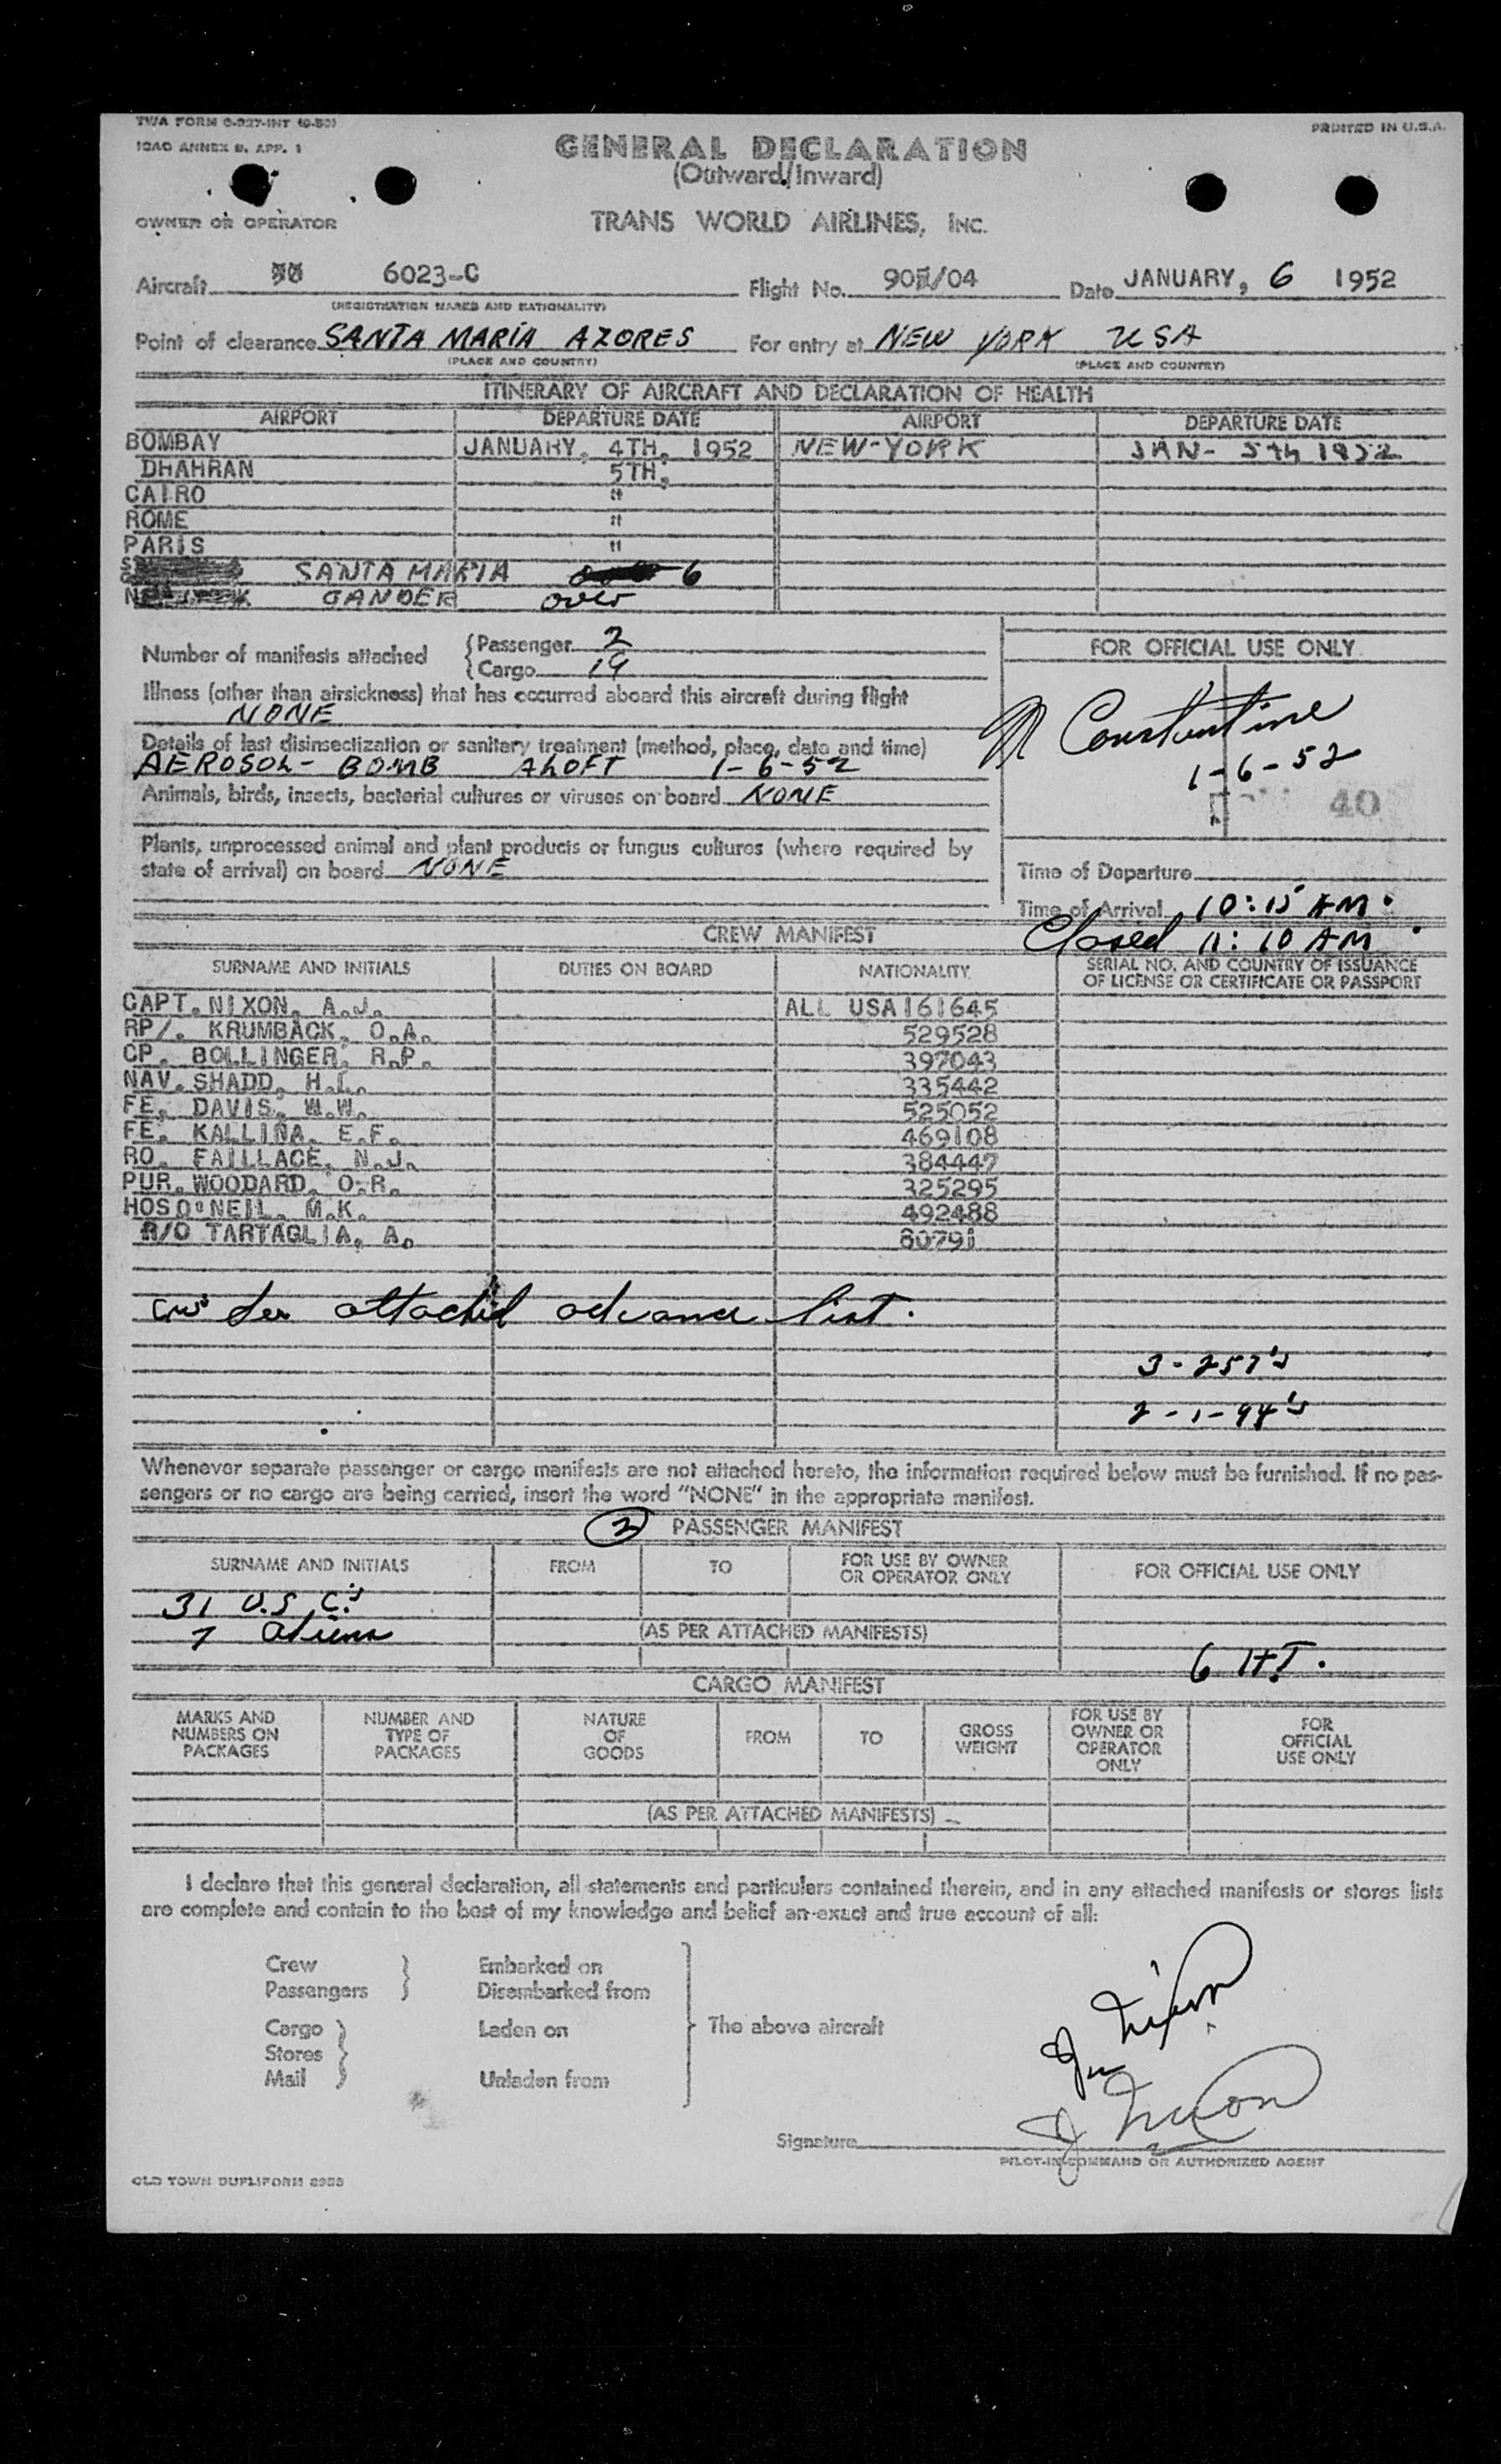 TWA FORM O-927-INT (9-50)
PRINTED IN U.S.A.
ICAO ANNEX 9, APP. 1
GENERAL DECLARATION
(Outward/Inward)
OWNER OR OPERATOR
TRANS WORLD AIRLINES, INC.
Aircraft 6023-C Flight No. 90 /04 Date JANUARY, 6 1952
(REGISTRATION MARKS AND NATIONALITY)
Point of clearance SANTA MARIA AZORES For entry at NEW YORK USA
(PLACE AND COUNTRY) (PLACE AND COUNTRY)
ITINERARY OF AIRCRAFT AND DECLARATION OF HEALTH
AIRPORT DEPARTURE DATE AIRPORT DEPARTURE DATE
BOMBAY JANUARY, 4TH, 1952 NEW-YORK JAN- 5th 1952
DHAHRAN 5TH,
CAIRO "
ROME "
PARIS "
SANTA MARIA 6
GANDER over
Number of manifests attached { Passenger 2
{ Cargo 19
Illness (other than airsickness) that has occurred aboard this aircraft during flight
NONE
Details of last disinsectization or sanitary treatment (method, place, date and time)
AEROSOL- BOMB ALOFT 1-6-52
Animals, birds, insects, bacterial cultures or viruses on board NONE
Plants, unprocessed animal and plant products or fungus cultures (where required by
state of arrival) on board NONE
FOR OFFICIAL USE ONLY
M Constantine
1-6-52
40
Time of Departure
Time of Arrival 10:15 AM.
Closed 11:10 AM
CREW MANIFEST
SURNAME AND INITIALS DUTIES ON BOARD NATIONALITY SERIAL NO. AND COUNTRY OF ISSUANCE
OF LICENSE OR CERTIFICATE OR PASSPORT
CAPT. NIXON, A.J. ALL USA 161645
RP/. KRUMBACK, O.A. 529528
CP. BOLLINGER, R.P. 397043
NAV. SHADD, H.L. 335442
FE, DAVIS, W.W. 525052
FE. KALLINA, E.F. 469108
RO. FAILLACE, N.J. 384447
PUR. WOODARD, O.R. 325295
HOS O'NEIL, M.K. 492488
R/O TARTAGLIA, A. 80791
attached advance list.
3-257's
2-1-94's
Whenever separate passenger or cargo manifests are not attached hereto, the information required below must be furnished. If no pas-
sengers or no cargo are being carried, insert the word "NONE" in the appropriate manifest.
2 PASSENGER MANIFEST
SURNAME AND INITIALS FROM TO FOR USE BY OWNER
OR OPERATOR ONLY FOR OFFICIAL USE ONLY
31 U.S.C.'s
7 aliens (AS PER ATTACHED MANIFESTS)
6 HT.
CARGO MANIFEST
MARKS AND
NUMBERS ON
PACKAGES
NUMBER AND
TYPE OF
PACKAGES
NATURE
OF
GOODS
FROM
TO
GROSS
WEIGHT
FOR USE BY
OWNER OR
OPERATOR
ONLY
FOR
OFFICIAL
USE ONLY
(AS PER ATTACHED MANIFESTS)
I declare that this general declaration, all statements and particulars contained therein, and in any attached manifests or stores lists
are complete and contain to the best of my knowledge and belief an exact and true account of all:
Crew
Passengers
Embarked on
Disembarked from
Cargo
Stores
Mail
Laden on
Unladen from
The above aircraft
Nixon
Nixon
Signature
PILOT-IN-COMMAND OR AUTHORIZED AGENT